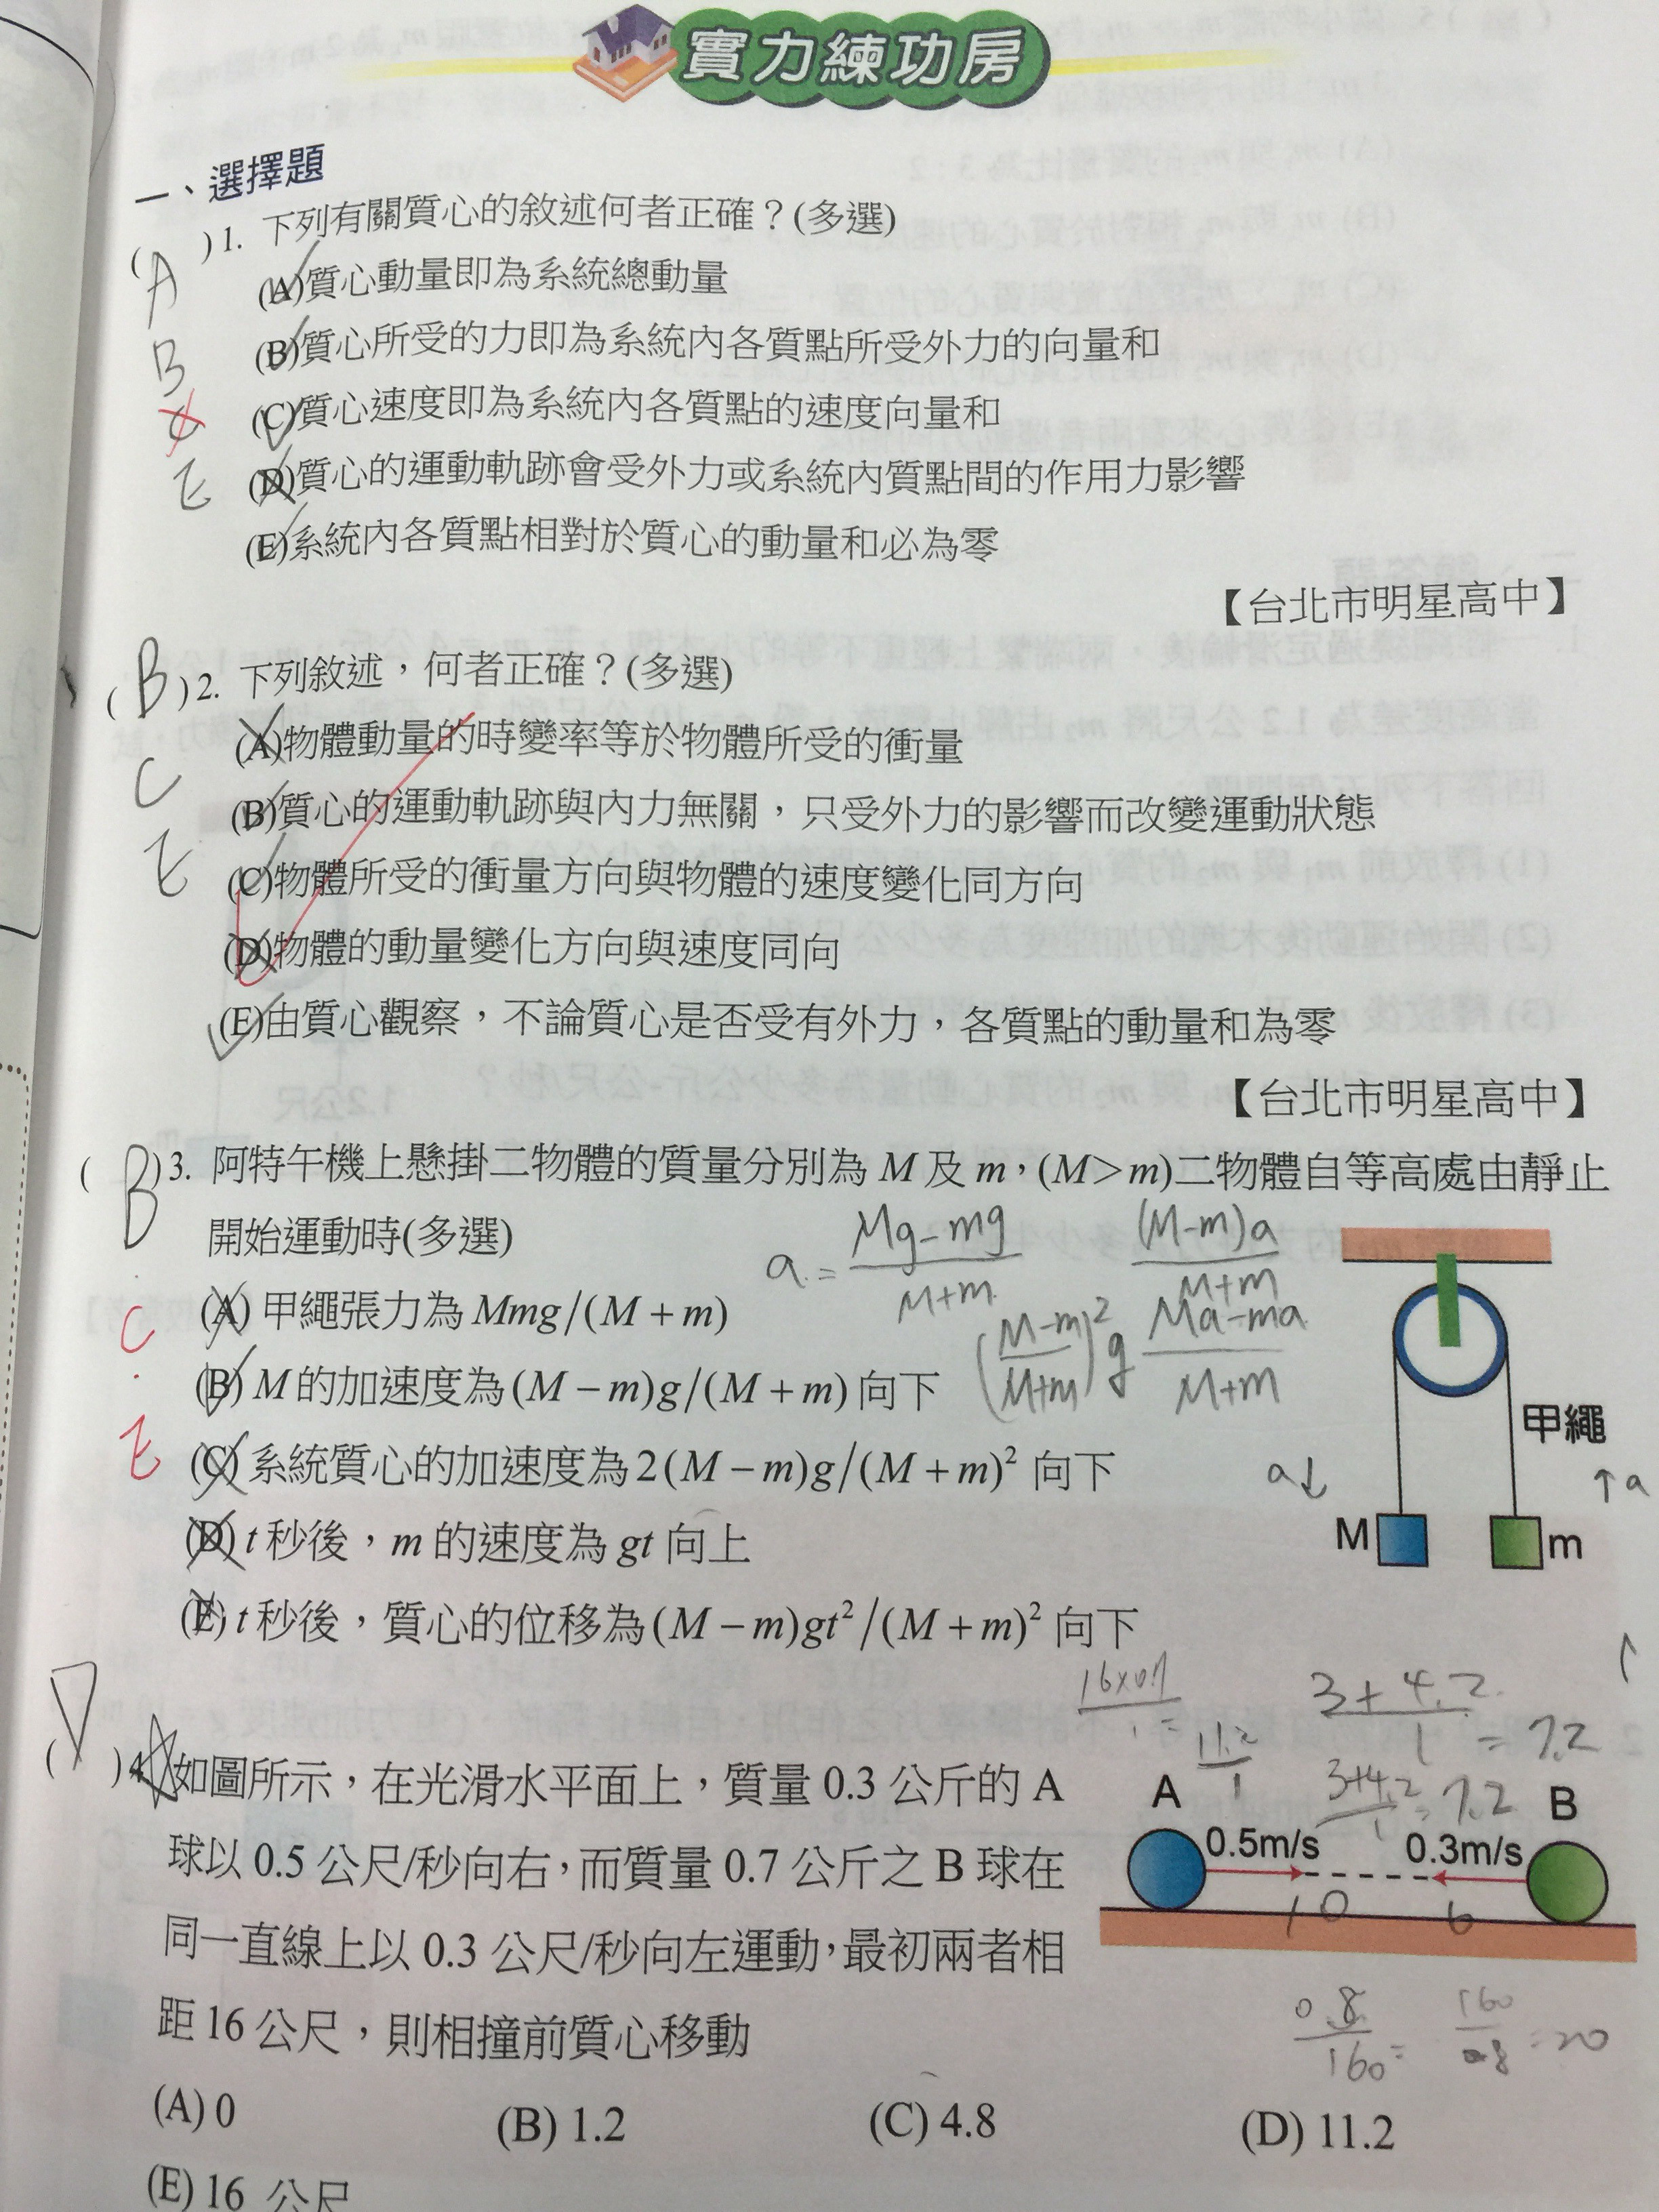 實力練功房
一、選擇題
(A B C E)1. 下列有關質心的敘述何者正確？(多選)
(A)質心動量即為系統總動量
(B)質心所受的力即為系統內各質點所受外力的向量和
(C)質心速度即為系統內各質點的速度向量和
(D)質心的運動軌跡會受外力或系統內質點間的作用力影響
(E)系統內各質點相對於質心的動量和必為零
【台北市明星高中】
(B C E)2. 下列敘述，何者正確？(多選)
(A)物體動量的時變率等於物體所受的衝量
(B)質心的運動軌跡與內力無關，只受外力的影響而改變運動狀態
(C)物體所受的衝量方向與物體的速度變化同方向
(D)物體的動量變化方向與速度同向
(E)由質心觀察，不論質心是否受有外力，各質點的動量和為零
【台北市明星高中】
(B C E)3. 阿特午機上懸掛二物體的質量分別為 M 及 m，(M>m)二物體自等高處由靜止
開始運動時(多選)
a = Mg-mg / M+m
(M-m)a / M+m
(A) 甲繩張力為 Mmg/(M + m)
(M-m / M+m)² g
Ma-ma / M+m
(B) M 的加速度為 (M − m)g/(M + m) 向下
(C) 系統質心的加速度為 2(M − m)g/(M + m)² 向下
(D) t 秒後，m 的速度為 gt 向上
(E) t 秒後，質心的位移為 (M − m)gt²/(M + m)² 向下
甲繩
a↓
↑a
M
m
16×0.7 / 1 =
11.2 / 1
3+4.2 / 1 = 7.2
3+4.2 / 1 = 7.2
(D)4. 如圖所示，在光滑水平面上，質量 0.3 公斤的 A
球以 0.5 公尺/秒向右，而質量 0.7 公斤之 B 球在
同一直線上以 0.3 公尺/秒向左運動，最初兩者相
距 16 公尺，則相撞前質心移動
A
B
0.5m/s
0.3m/s
10
6
0.8 / 160 =
160 / 8 = 20
(A) 0 (B) 1.2 (C) 4.8 (D) 11.2
(E) 16 公尺